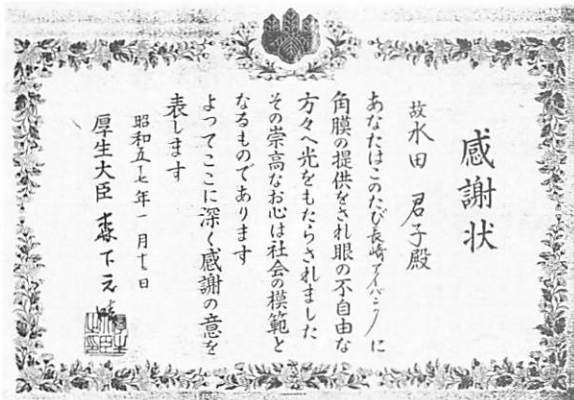 感謝状
故水田君子殿
あなたはこのたび長崎アイバンクに
角膜の提供をされ眼の不自由な
方々へ光をもたらされました
その崇高なお心は社会の模範と
なるものであります
よってここに深く感謝の意を
表します
昭和五十七年一月十七日
厚生大臣 森下元晴